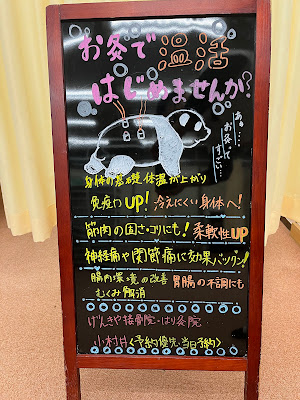 お灸で温活
はじめませんか?
あぁ…
お灸って
すごい…
身体の基礎体温が上がり
免疫力UP!冷えにくい身体へ!
筋肉の固さ・コリにも!柔軟性UP
神経痛や関節痛に効果バツグン!
腸内環境の改善 胃腸の不調にも
むくみ解消
げんきや接骨院・はり灸院
<予約優先・当日予約>